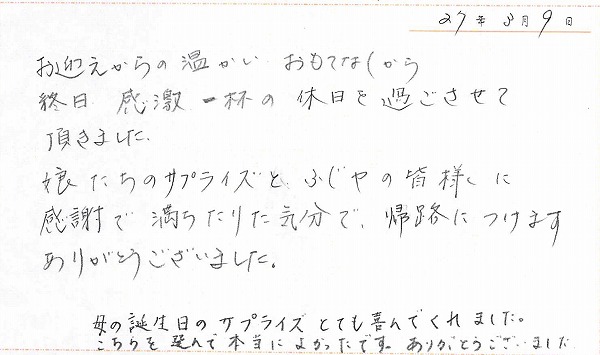 27年3月9日
お迎えからの温かい おもてなしから
終日 感激 一杯の 休日を過ごさせて
頂きました。
娘たちのサプライズと、ふじやの皆様に
感謝で満ちたりた気分で、帰路につけます
ありがとうございました。
母の誕生日のサプライズとても喜んでくれました。
こちらを選んで本当によかったです。ありがとうございました